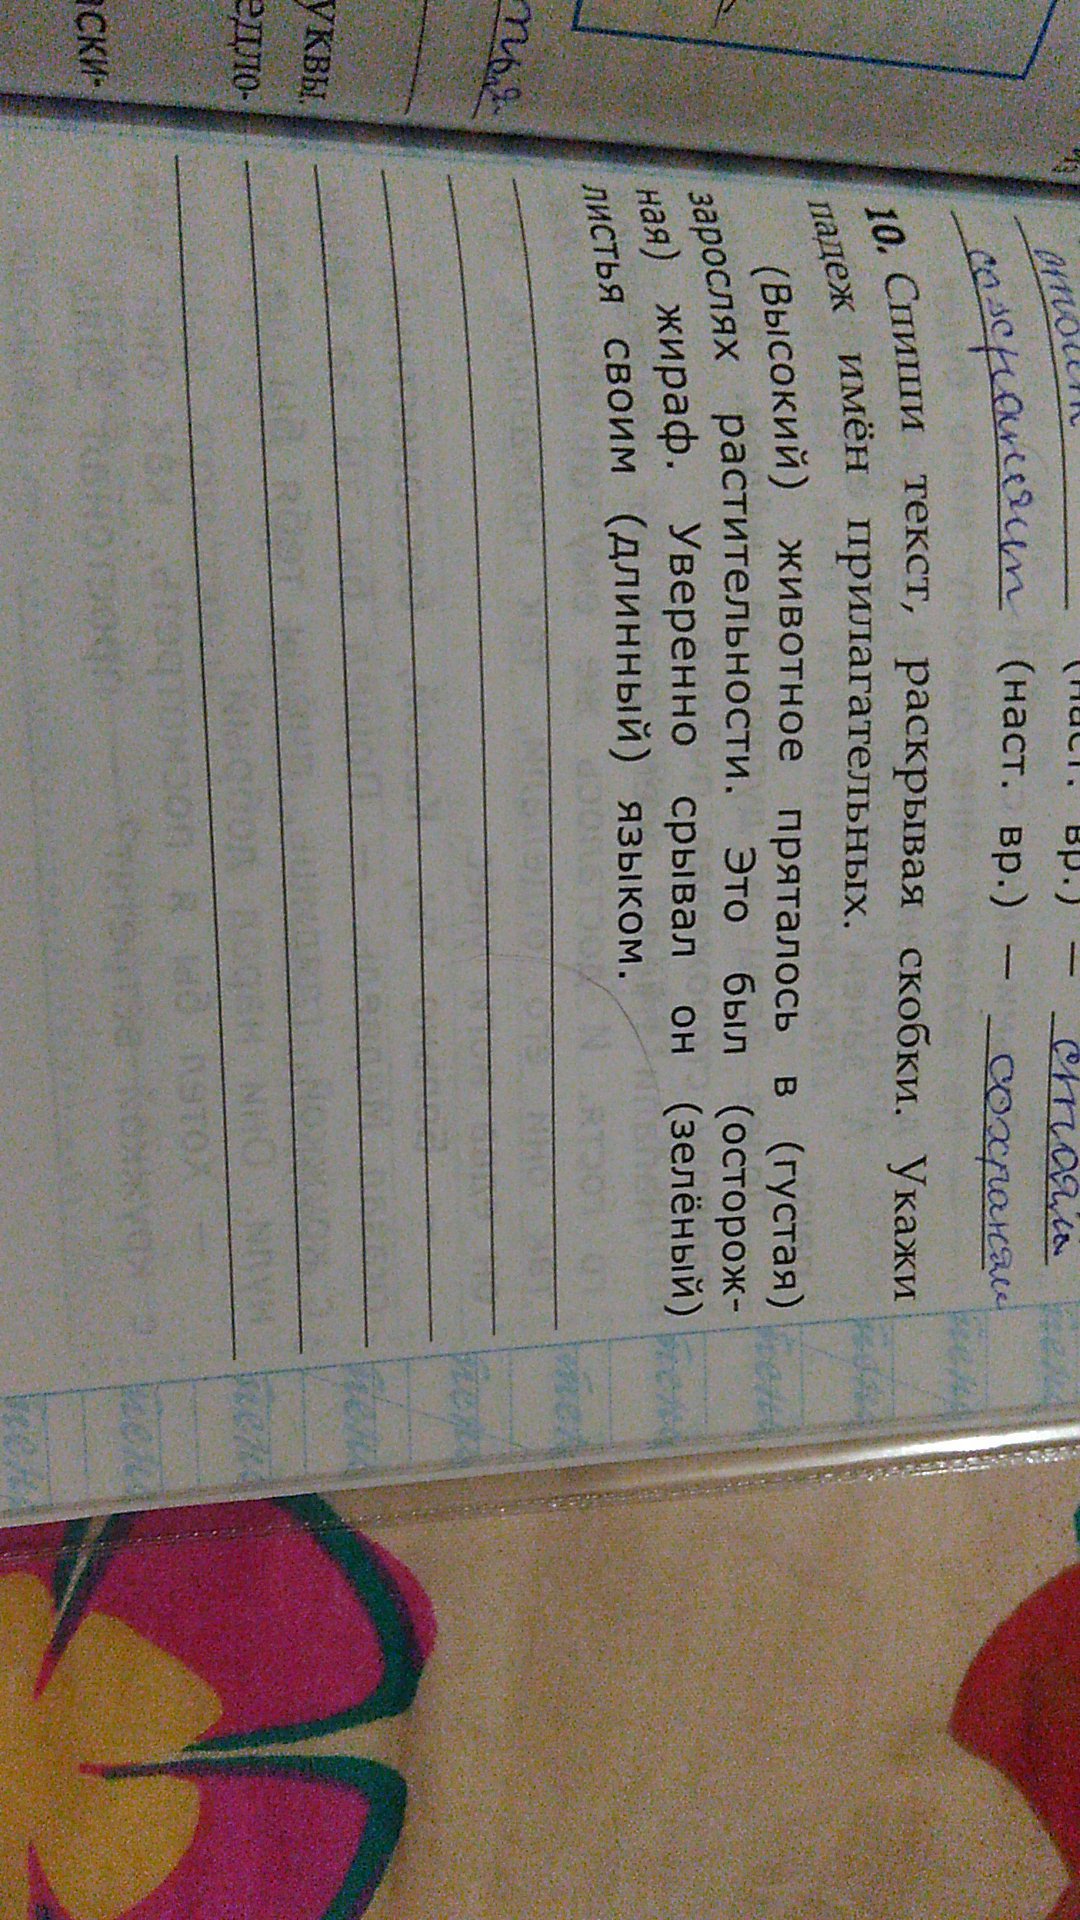 сохраняет (наст. вр.) — сохранял
10. Спиши текст, раскрывая скобки. Укажи
падеж имён прилагательных.
(Высокий) животное пряталось в (густая)
зарослях растительности. Это был (осторож-
ная) жираф. Уверенно срывал он (зелёный)
листья своим (длинный) языком.
уквы.
едло-
аски-